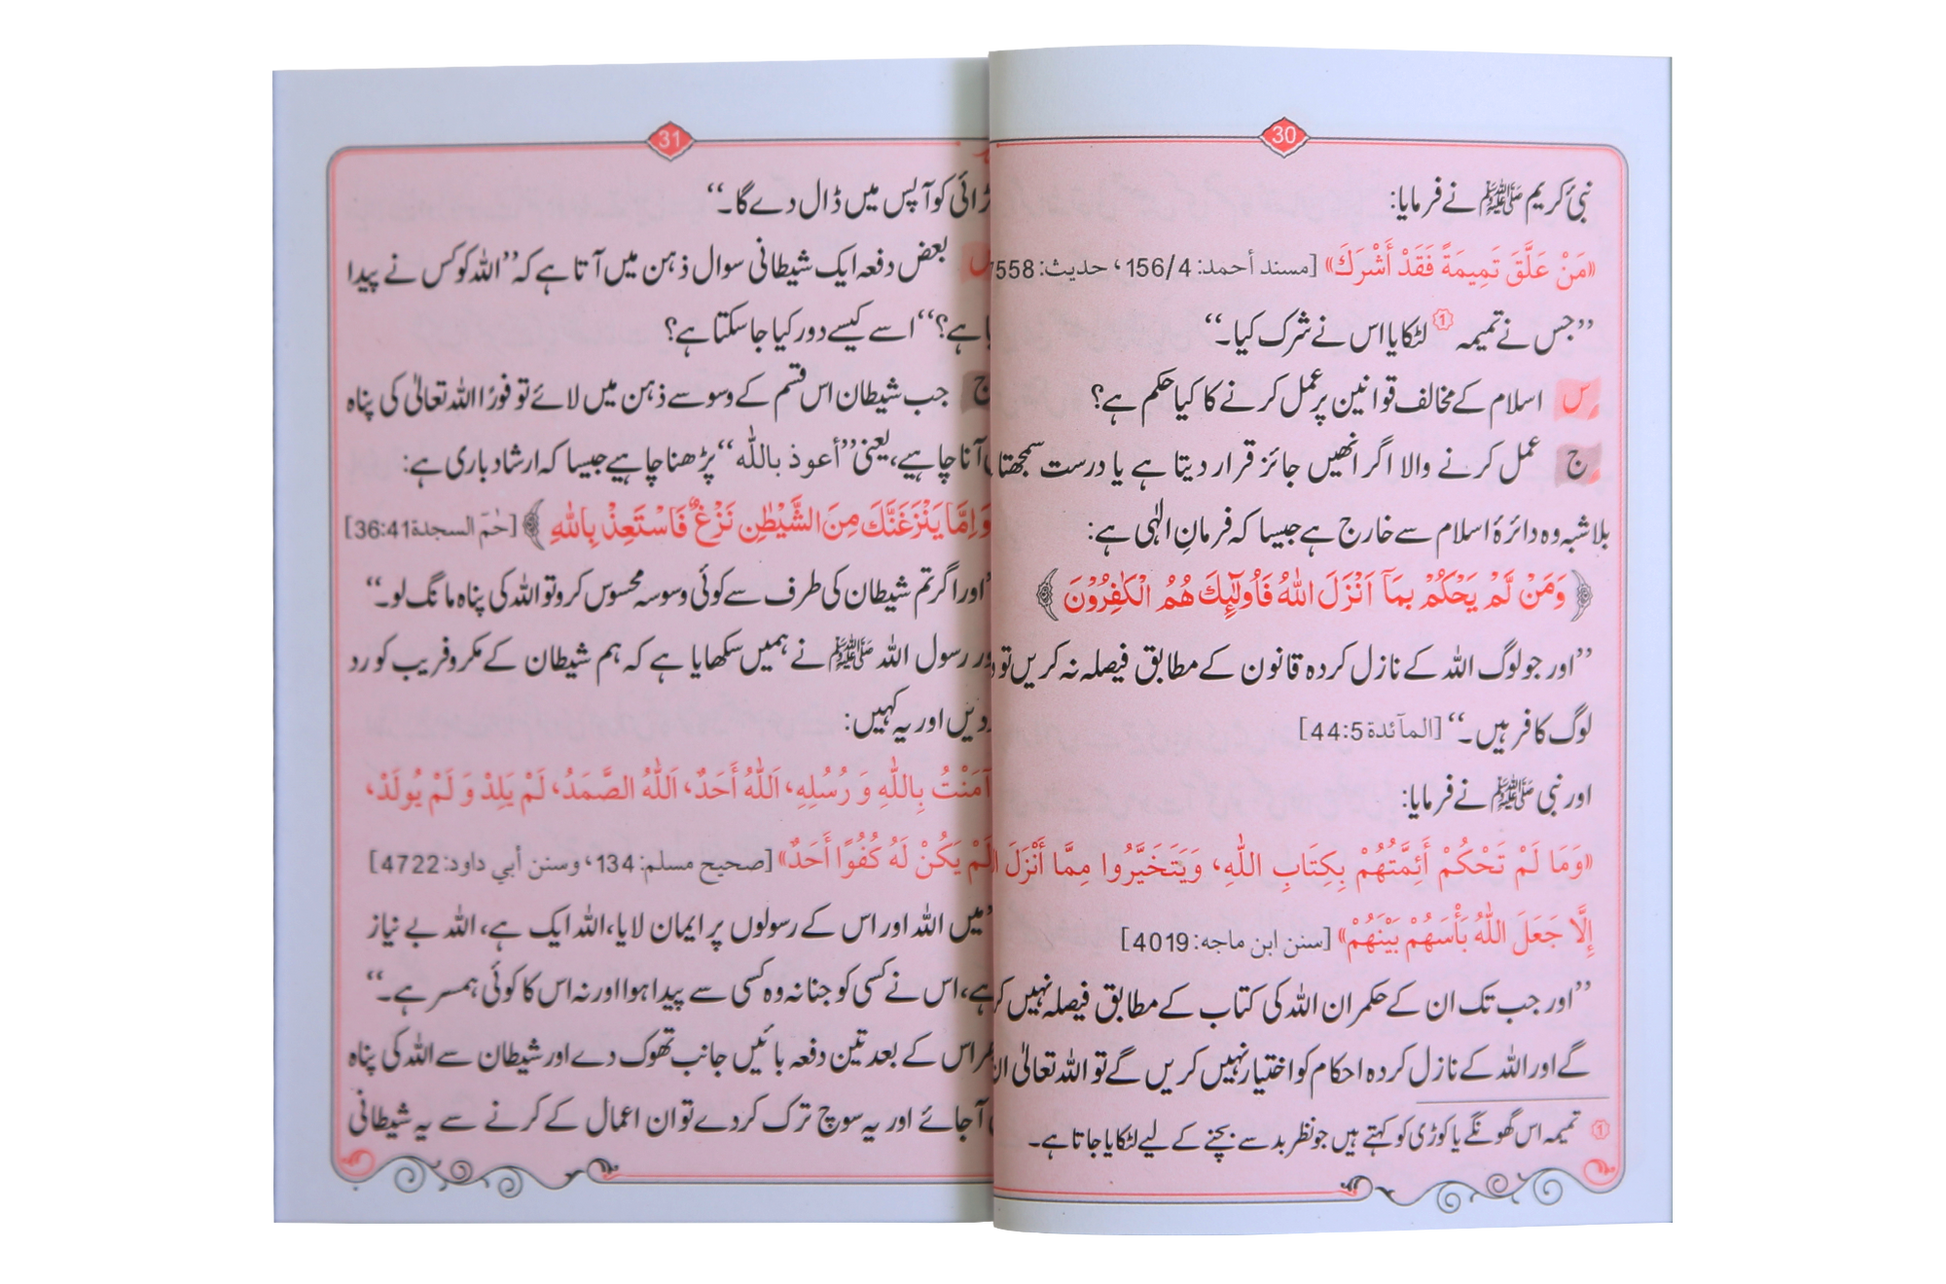 30
نبیٔ کریم ﷺ نے فرمایا:
«مَنْ عَلَّقَ تَمِيمَةً فَقَدْ أَشْرَكَ» [مسند أحمد: 156/4، حدیث: 7558
”جس نے تمیمہ ① لٹکایا اس نے شرک کیا۔“
س اسلام کے مخالف قوانین پر عمل کرنے کا کیا حکم ہے؟
ج عمل کرنے والا اگر انھیں جائز قرار دیتا ہے یا درست سمجھتا
بلاشبہ وہ دائرۂ اسلام سے خارج ہے جیسا کہ فرمانِ الٰہی ہے:
﴿وَمَنْ لَّمْ يَحْكُمْ بِمَآ اَنْزَلَ اللّٰهُ فَاُولٰٓئِكَ هُمُ الْكٰفِرُوْنَ﴾
”اور جو لوگ اللہ کے نازل کردہ قانون کے مطابق فیصلہ نہ کریں تو و
لوگ کافر ہیں۔“ [المآئدة 44:5]
اور نبی ﷺ نے فرمایا:
«وَمَا لَمْ تَحْكُمْ أَئِمَّتُهُمْ بِكِتَابِ اللّٰهِ، وَيَتَخَيَّرُوا مِمَّا أَنْزَلَ
إِلَّا جَعَلَ اللّٰهُ بَأْسَهُمْ بَيْنَهُمْ» [سنن ابن ماجه: 4019]
”اور جب تک ان کے حکمران اللہ کی کتاب کے مطابق فیصلہ نہیں کر
گے اور اللہ کے نازل کردہ احکام کو اختیار نہیں کریں گے تو اللہ تعالیٰ ان
① تمیمہ اس گھونگے یا کوڑی کو کہتے ہیں جو نظر بد سے بچنے کے لیے لٹکایا جاتا ہے۔
31
ڑائی کو آپس میں ڈال دے گا۔“
س بعض دفعہ ایک شیطانی سوال ذہن میں آتا ہے کہ ”اللہ کو کس نے پیدا
یا ہے؟“ اسے کیسے دور کیا جا سکتا ہے؟
ج جب شیطان اس قسم کے وسوسے ذہن میں لائے تو فورًا اللہ تعالیٰ کی پناہ
آنا چاہیے، یعنی ”أعوذ باللّٰه“ پڑھنا چاہیے جیسا کہ ارشاد باری ہے:
وَاِمَّا يَنْزَغَنَّكَ مِنَ الشَّيْطٰنِ نَزْغٌ فَاسْتَعِذْ بِاللّٰهِ﴾ [حٰمٓ السجدة 36:41]
”اور اگر تم شیطان کی طرف سے کوئی وسوسہ محسوس کرو تو اللہ کی پناہ مانگ لو۔“
ور رسول اللہ ﷺ نے ہمیں سکھایا ہے کہ ہم شیطان کے مکر و فریب کو رد
ردیں اور یہ کہیں:
آمَنْتُ بِاللّٰهِ وَ رُسُلِهِ، اَللّٰهُ أَحَدٌ، اَللّٰهُ الصَّمَدُ، لَمْ يَلِدْ وَ لَمْ يُولَدْ،
لَمْ يَكُنْ لَهُ كُفُوًا أَحَدٌ» [صحیح مسلم: 134، وسنن أبي داود: 4722]
”میں اللہ اور اس کے رسولوں پر ایمان لایا، اللہ ایک ہے، اللہ بے نیاز
ہے، اس نے کسی کو جنا نہ وہ کسی سے پیدا ہوا اور نہ اس کا کوئی ہمسر ہے۔“
ھر اس کے بعد تین دفعہ بائیں جانب تھوک دے اور شیطان سے اللہ کی پناہ
آجائے اور یہ سوچ ترک کر دے تو ان اعمال کے کرنے سے یہ شیطانی